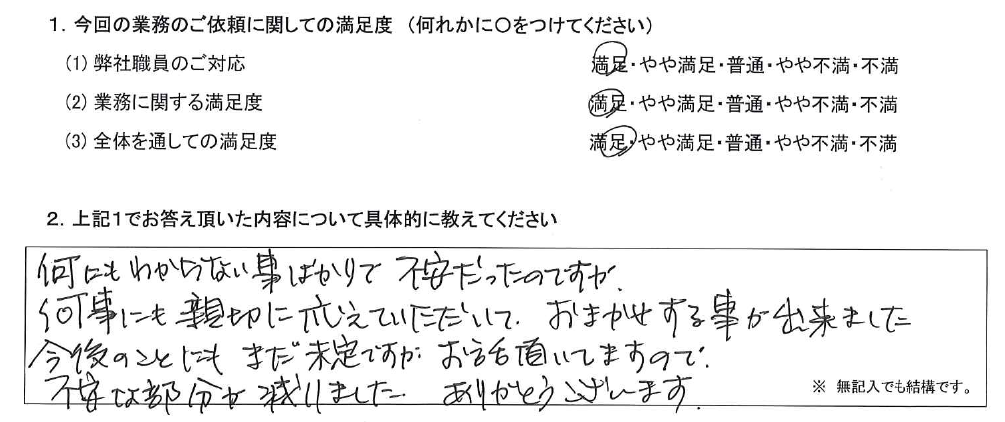 1. 今回の業務のご依頼に関しての満足度 (何れかに〇をつけてください)
(1) 弊社職員のご対応 満足・やや満足・普通・やや不満・不満
(2) 業務に関する満足度 満足・やや満足・普通・やや不満・不満
(3) 全体を通しての満足度 満足・やや満足・普通・やや不満・不満
2. 上記1でお答え頂いた内容について具体的に教えてください
何にもわからない事ばかりで 不安だったのですが、
何事にも親切に応えていただいて、おまかせする事が出来ました
今後のことにも まだ未定ですが お話頂いてますので、
不安な部分が減りました。 ありがとうございます。
※ 無記入でも結構です。